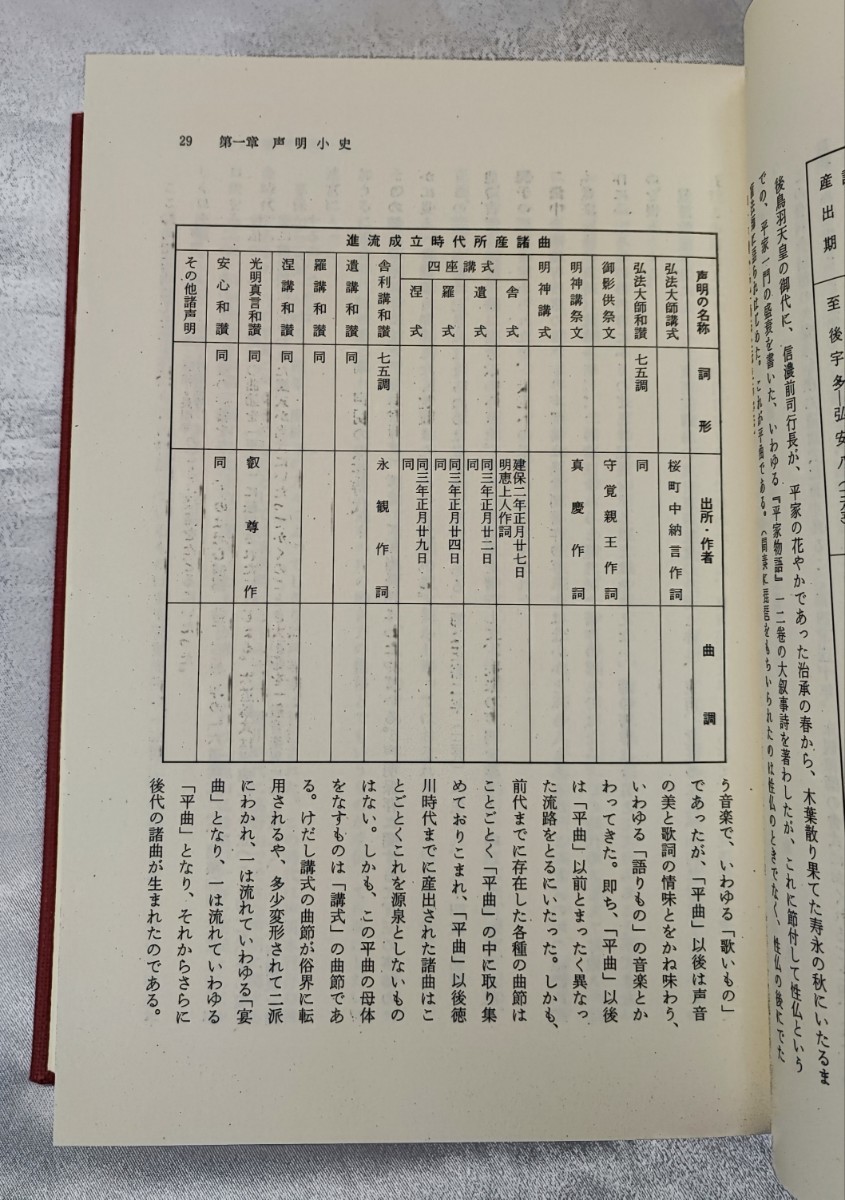 産出期
至 後宇多—弘安八
後鳥羽天皇の御代に、信濃前司行長が、平家の花やかであった治承の春から、木葉散り果てた寿永の秋にいたるま
での、平家一門の盛衰を書いた、いわゆる『平家物語』一二巻の大叙事詩を著わしたが、これに節付して性仏という
これが平曲である。
られたのは性仏のときでなく、性仏の後にでた
29 第一章 声明小史
進流成立時代所産諸曲
声明の名称 詞形 出所・作者 曲調
弘法大師講式 桜町中納言作詞
弘法大師和讃 七五調 同
御影供祭文 守覚親王作詞
明神講祭文 真慶作詞
明神講式
四座講式
舎式 建保二年正月廿七日
明恵上人作詞
遺式 同三年正月廿二日
同
羅式 同三年正月廿四日
同
涅式 同三年正月廿九日
同
舎利講和讃 七五調 永観作詞
遺講和讃 同
羅講和讃 同
涅講和讃 同
光明真言和讃 同 叡尊作
安心和讃 同 同
その他諸声明
う音楽で、いわゆる「歌いもの」
であったが、「平曲」以後は声音
の美と歌詞の情味とをかね味わう、
いわゆる「語りもの」の音楽とか
わってきた。即ち、「平曲」以後
は「平曲」以前とまったく異なっ
た流路をとるにいたった。しかも、
前代までに存在した各種の曲節は
ことごとく「平曲」の中に取り集
めておりこまれ、「平曲」以後徳
川時代までに産出された諸曲はこ
とごとくこれを源泉としないもの
はない。しかも、この平曲の母体
をなすものは「講式」の曲節であ
る。けだし講式の曲節が俗界に転
用されるや、多少変形されて二派
にわかれ、一は流れていわゆる「宴
曲」となり、一は流れていわゆる
「平曲」となり、それからさらに
後代の諸曲が生まれたのである。